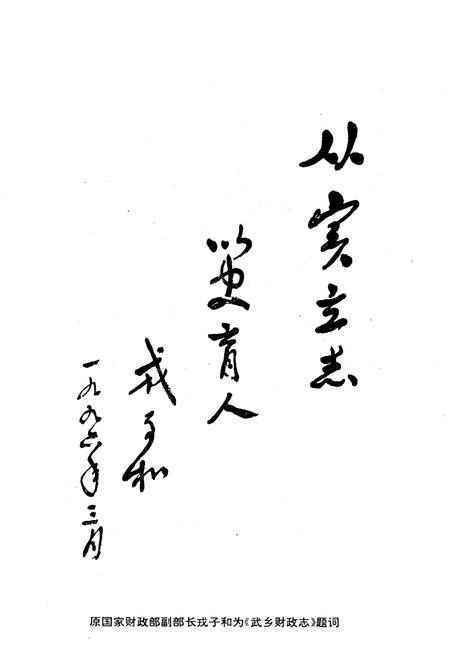 从实立志
以史育人
戎子和
一九九六年三月
原国家财政部副部长戎子和为《武乡财政志》题词